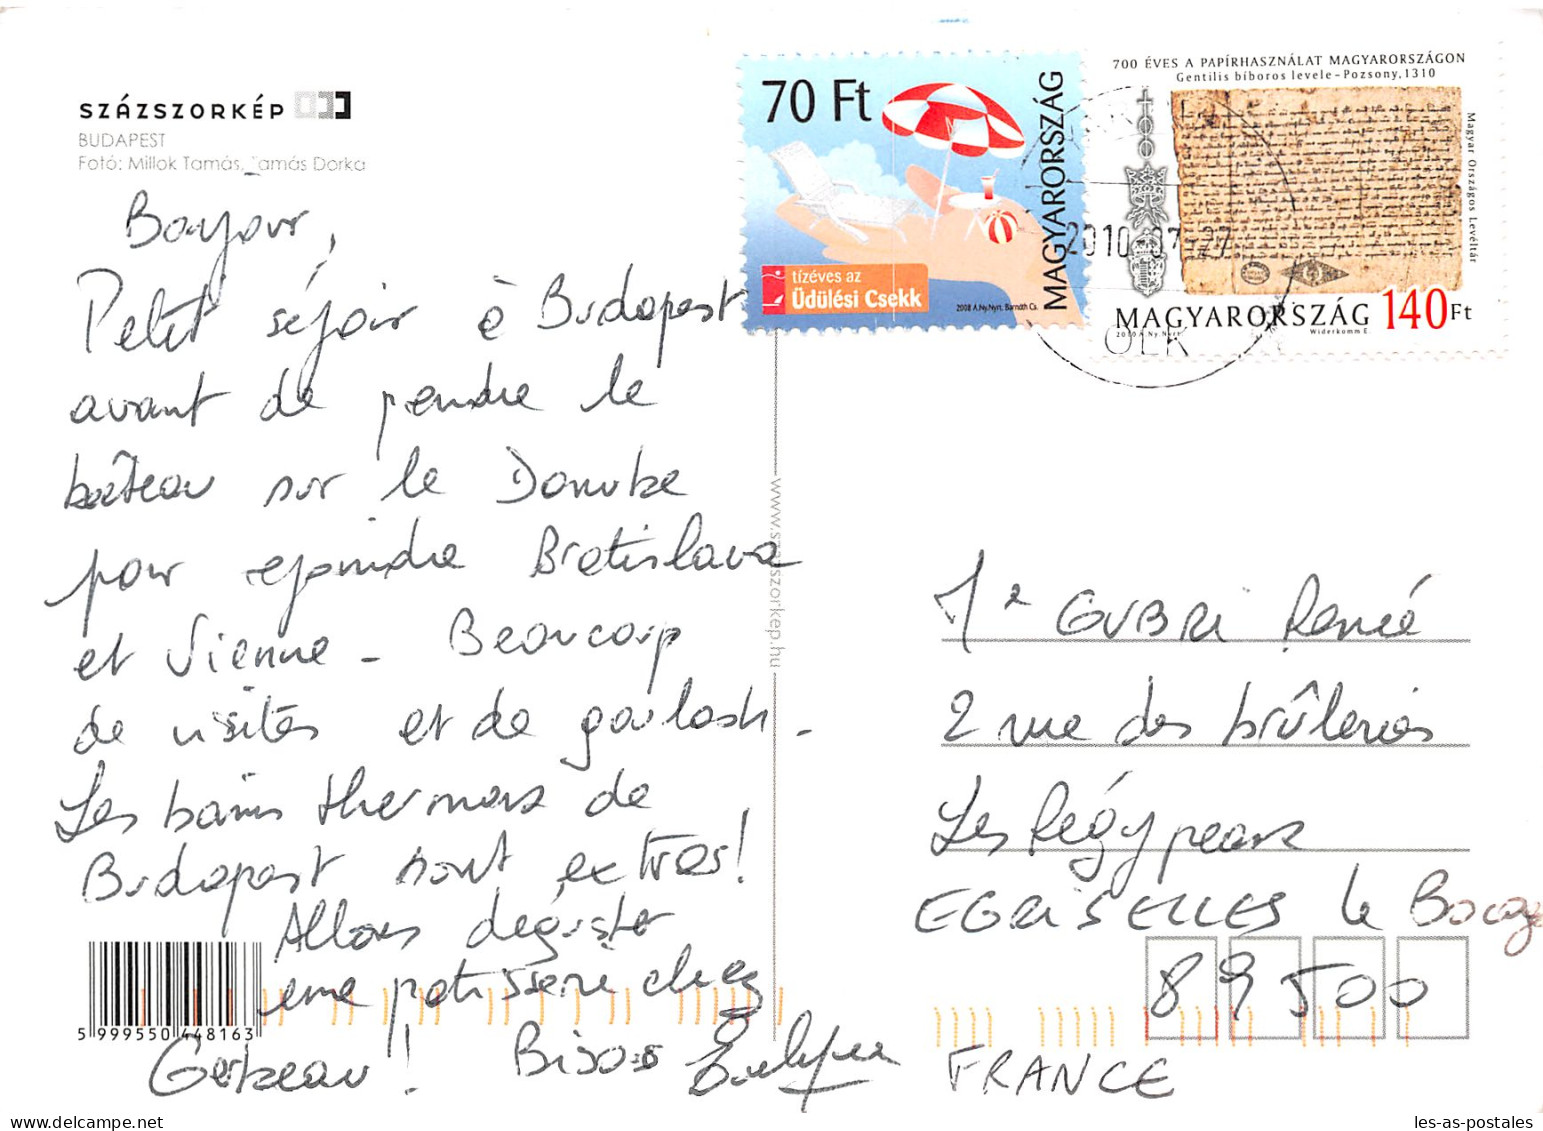 SZÁZSZORKÉP
BUDAPEST
Fotó: Millok Tamás, Tamás Dorka
Bonjour,
Petit séjour à Budapest
avant de prendre le
bâteau sur le Danube
pour rejoindre Bratislava
et Vienne - Beaucoup
de visites et de goulash -
Les bains thermaux de
Budapest sont extras!
Allons déguster
une patisserie chez
Gerbeau! Bisous
5 999550 448163
www.szazszorkep.hu
70 Ft
MAGYARORSZÁG
tízéves az
Üdülési Csekk
2008 A.Ny.Nyrt. Barnóth Cs.
700 ÉVES A PAPÍRHASZNÁLAT MAGYARORSZÁGON
Gentilis bíboros levele - Pozsony, 1310
Magyar Országos Levéltár
MAGYARORSZÁG 140 Ft
2010 A.Ny.Nyrt. Widerkomm E.
2010-07-27
OLK
GUBRI Renée
2 rue des brûleries
Les
EGRISELLES le Bocage
89500
FRANCE
les-as-postales